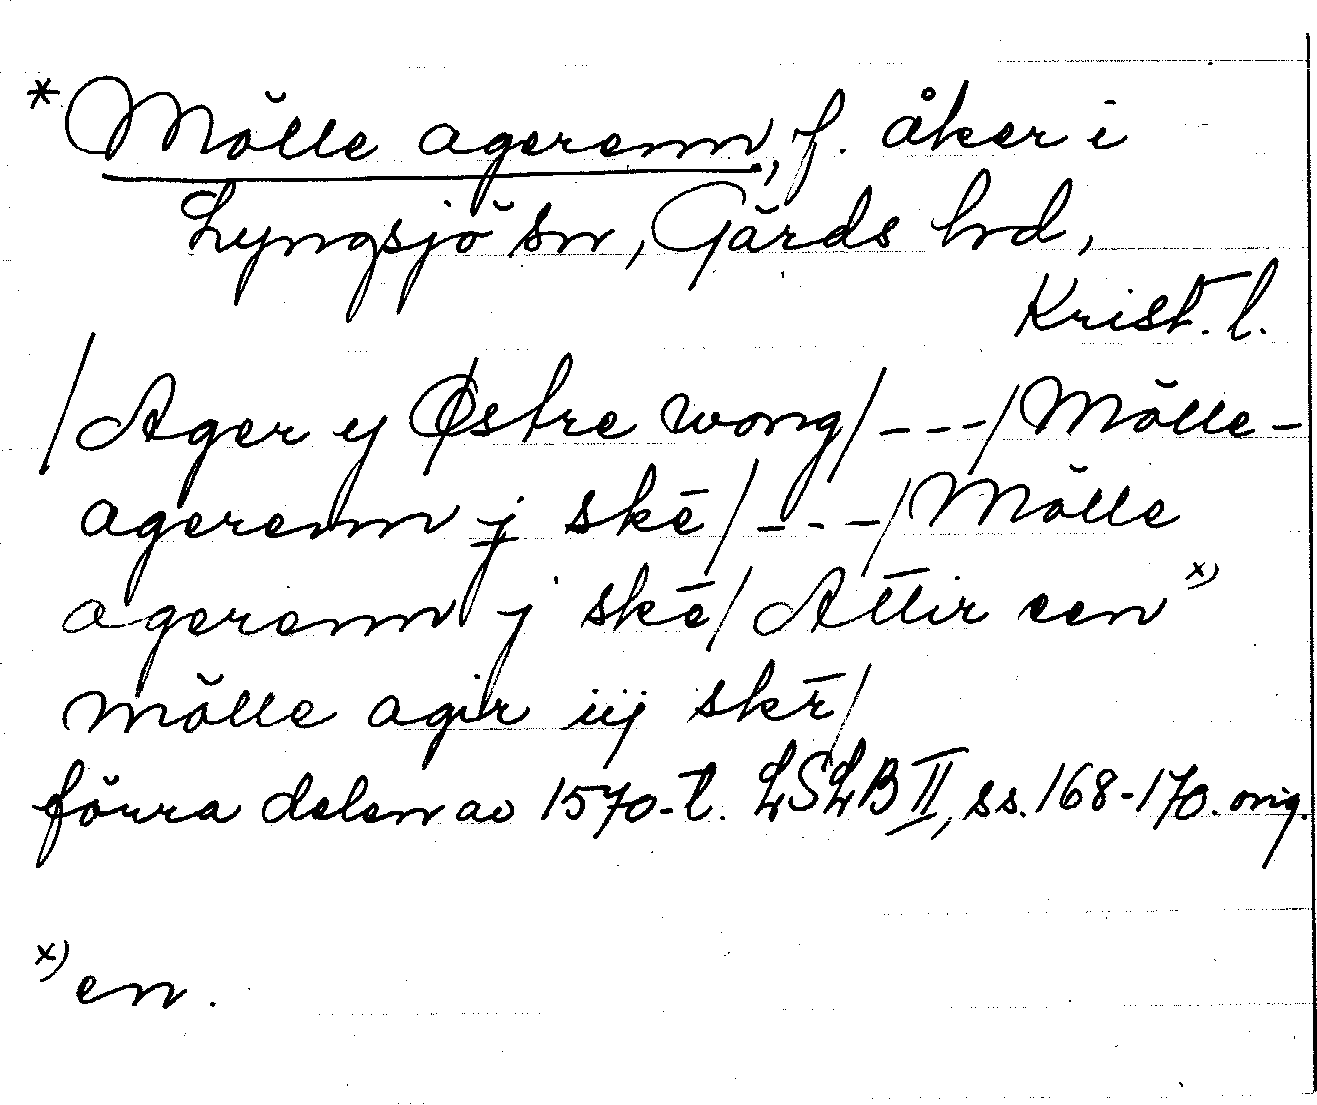 * Mölle agerenn, f. åker i
Lyngsjö sn, Gärds hd,
Krist. l.
/Ager y Østre wong/---/Mölle-
agerenn j skē/---/Mölle
agerenn j skē/Attir een x)
mölle agir iij skē/
förra delen av 1570-t. LSLB II, ss. 168-170. orig.
x) en.